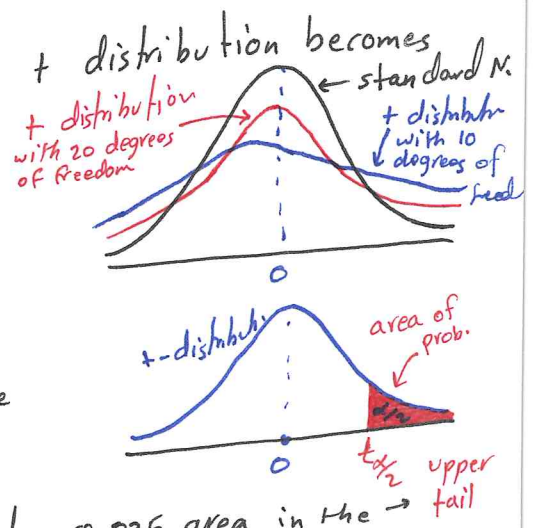 t distribution becomes
standard N.
t distribution
with 20 degrees
of freedom
t distributn
with 10
degrees of
freed
0
t-distributi
area of
prob.
α/2
0
tα/2 upper
tail
area in the →